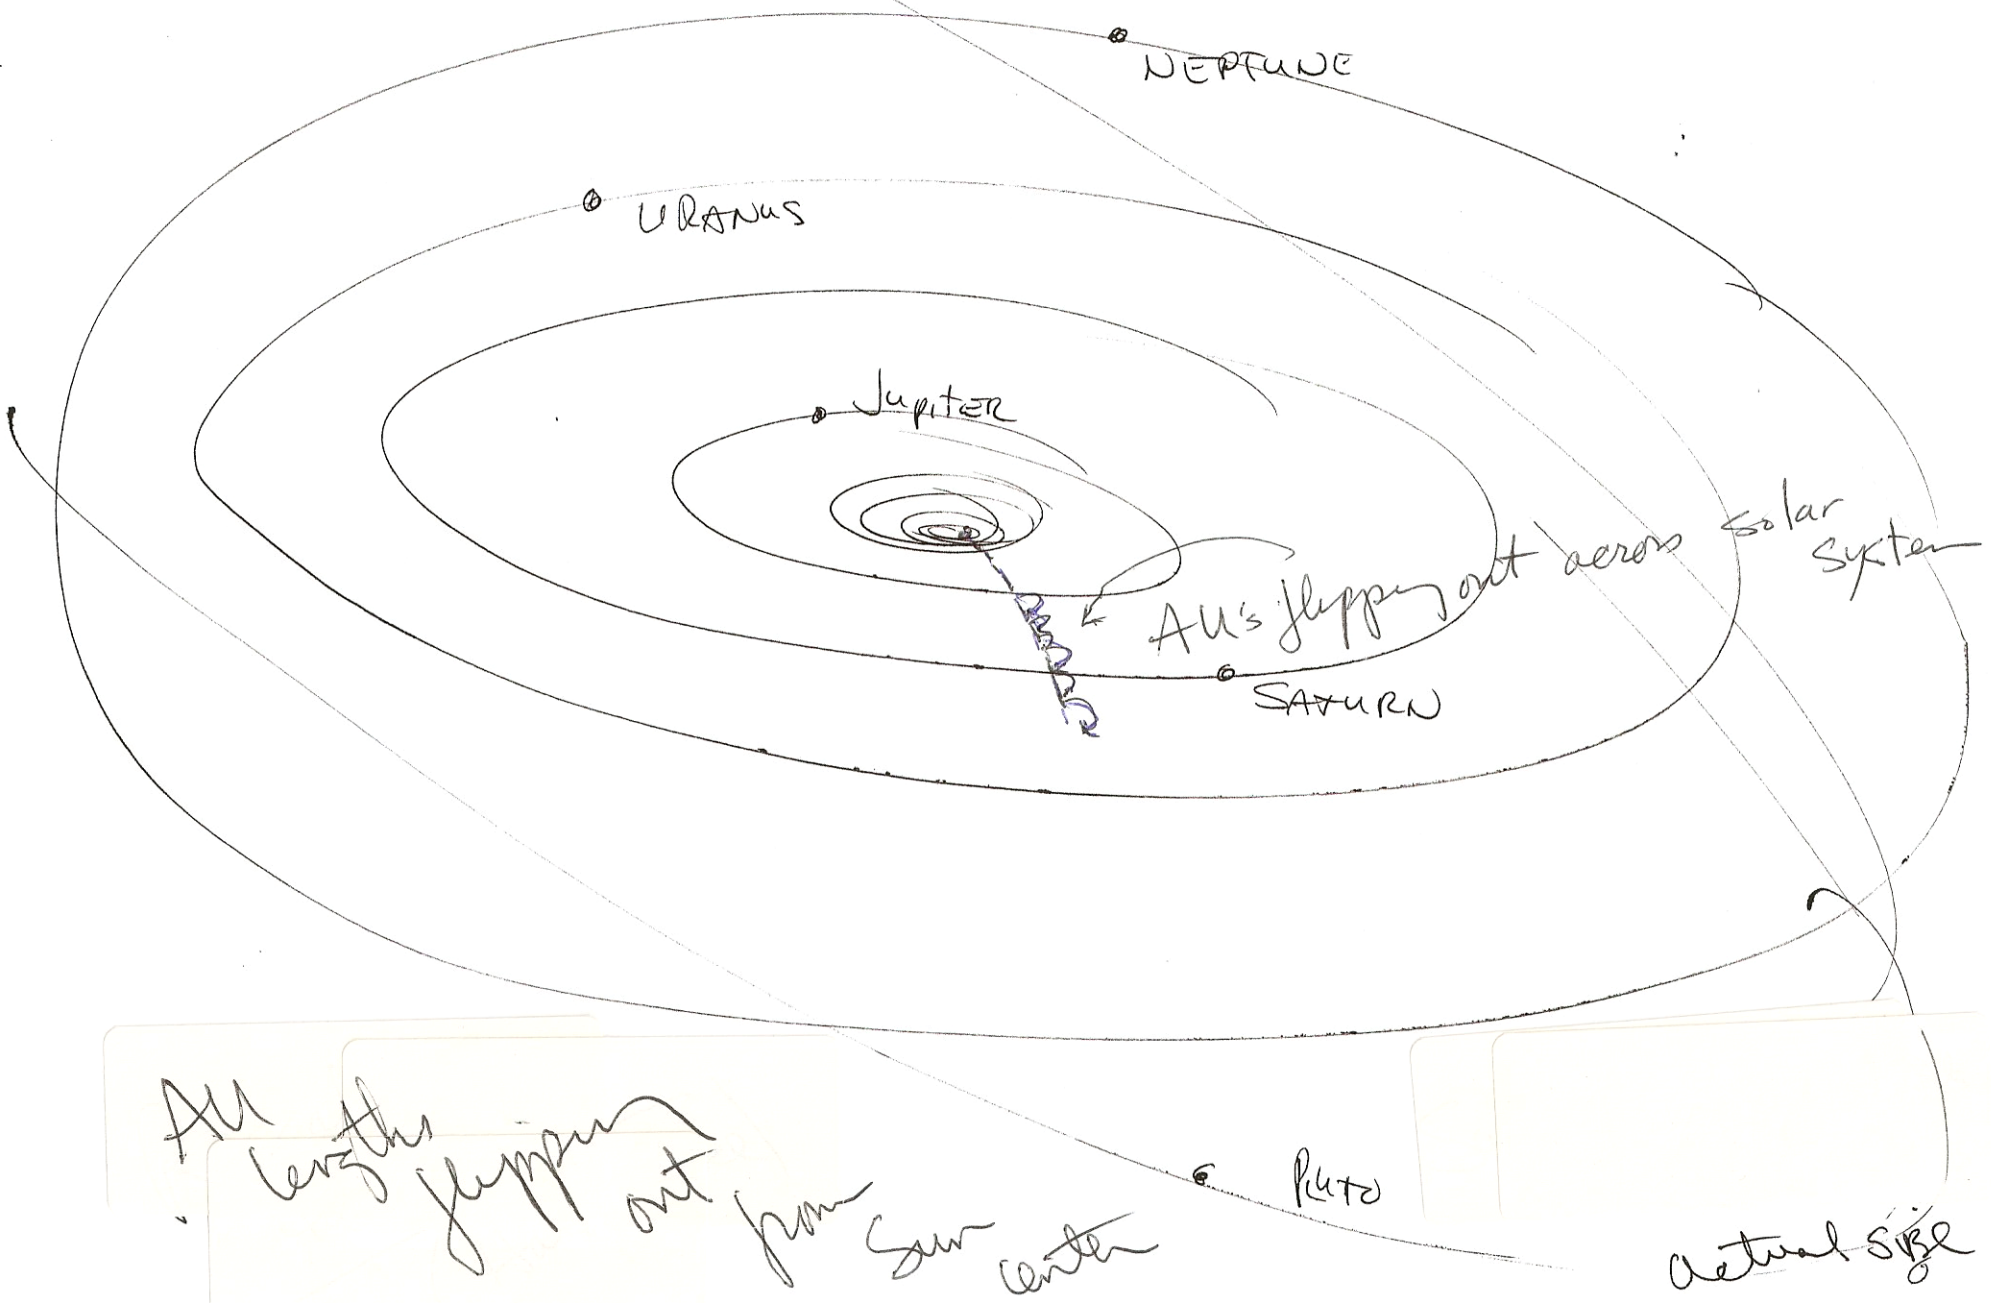 NEPTUNE
URANUS
Jupiter
AU's flipping out across solar
system
SATURN
AU
lengths
flipping
out
from
Sun
center
Pluto
actual size